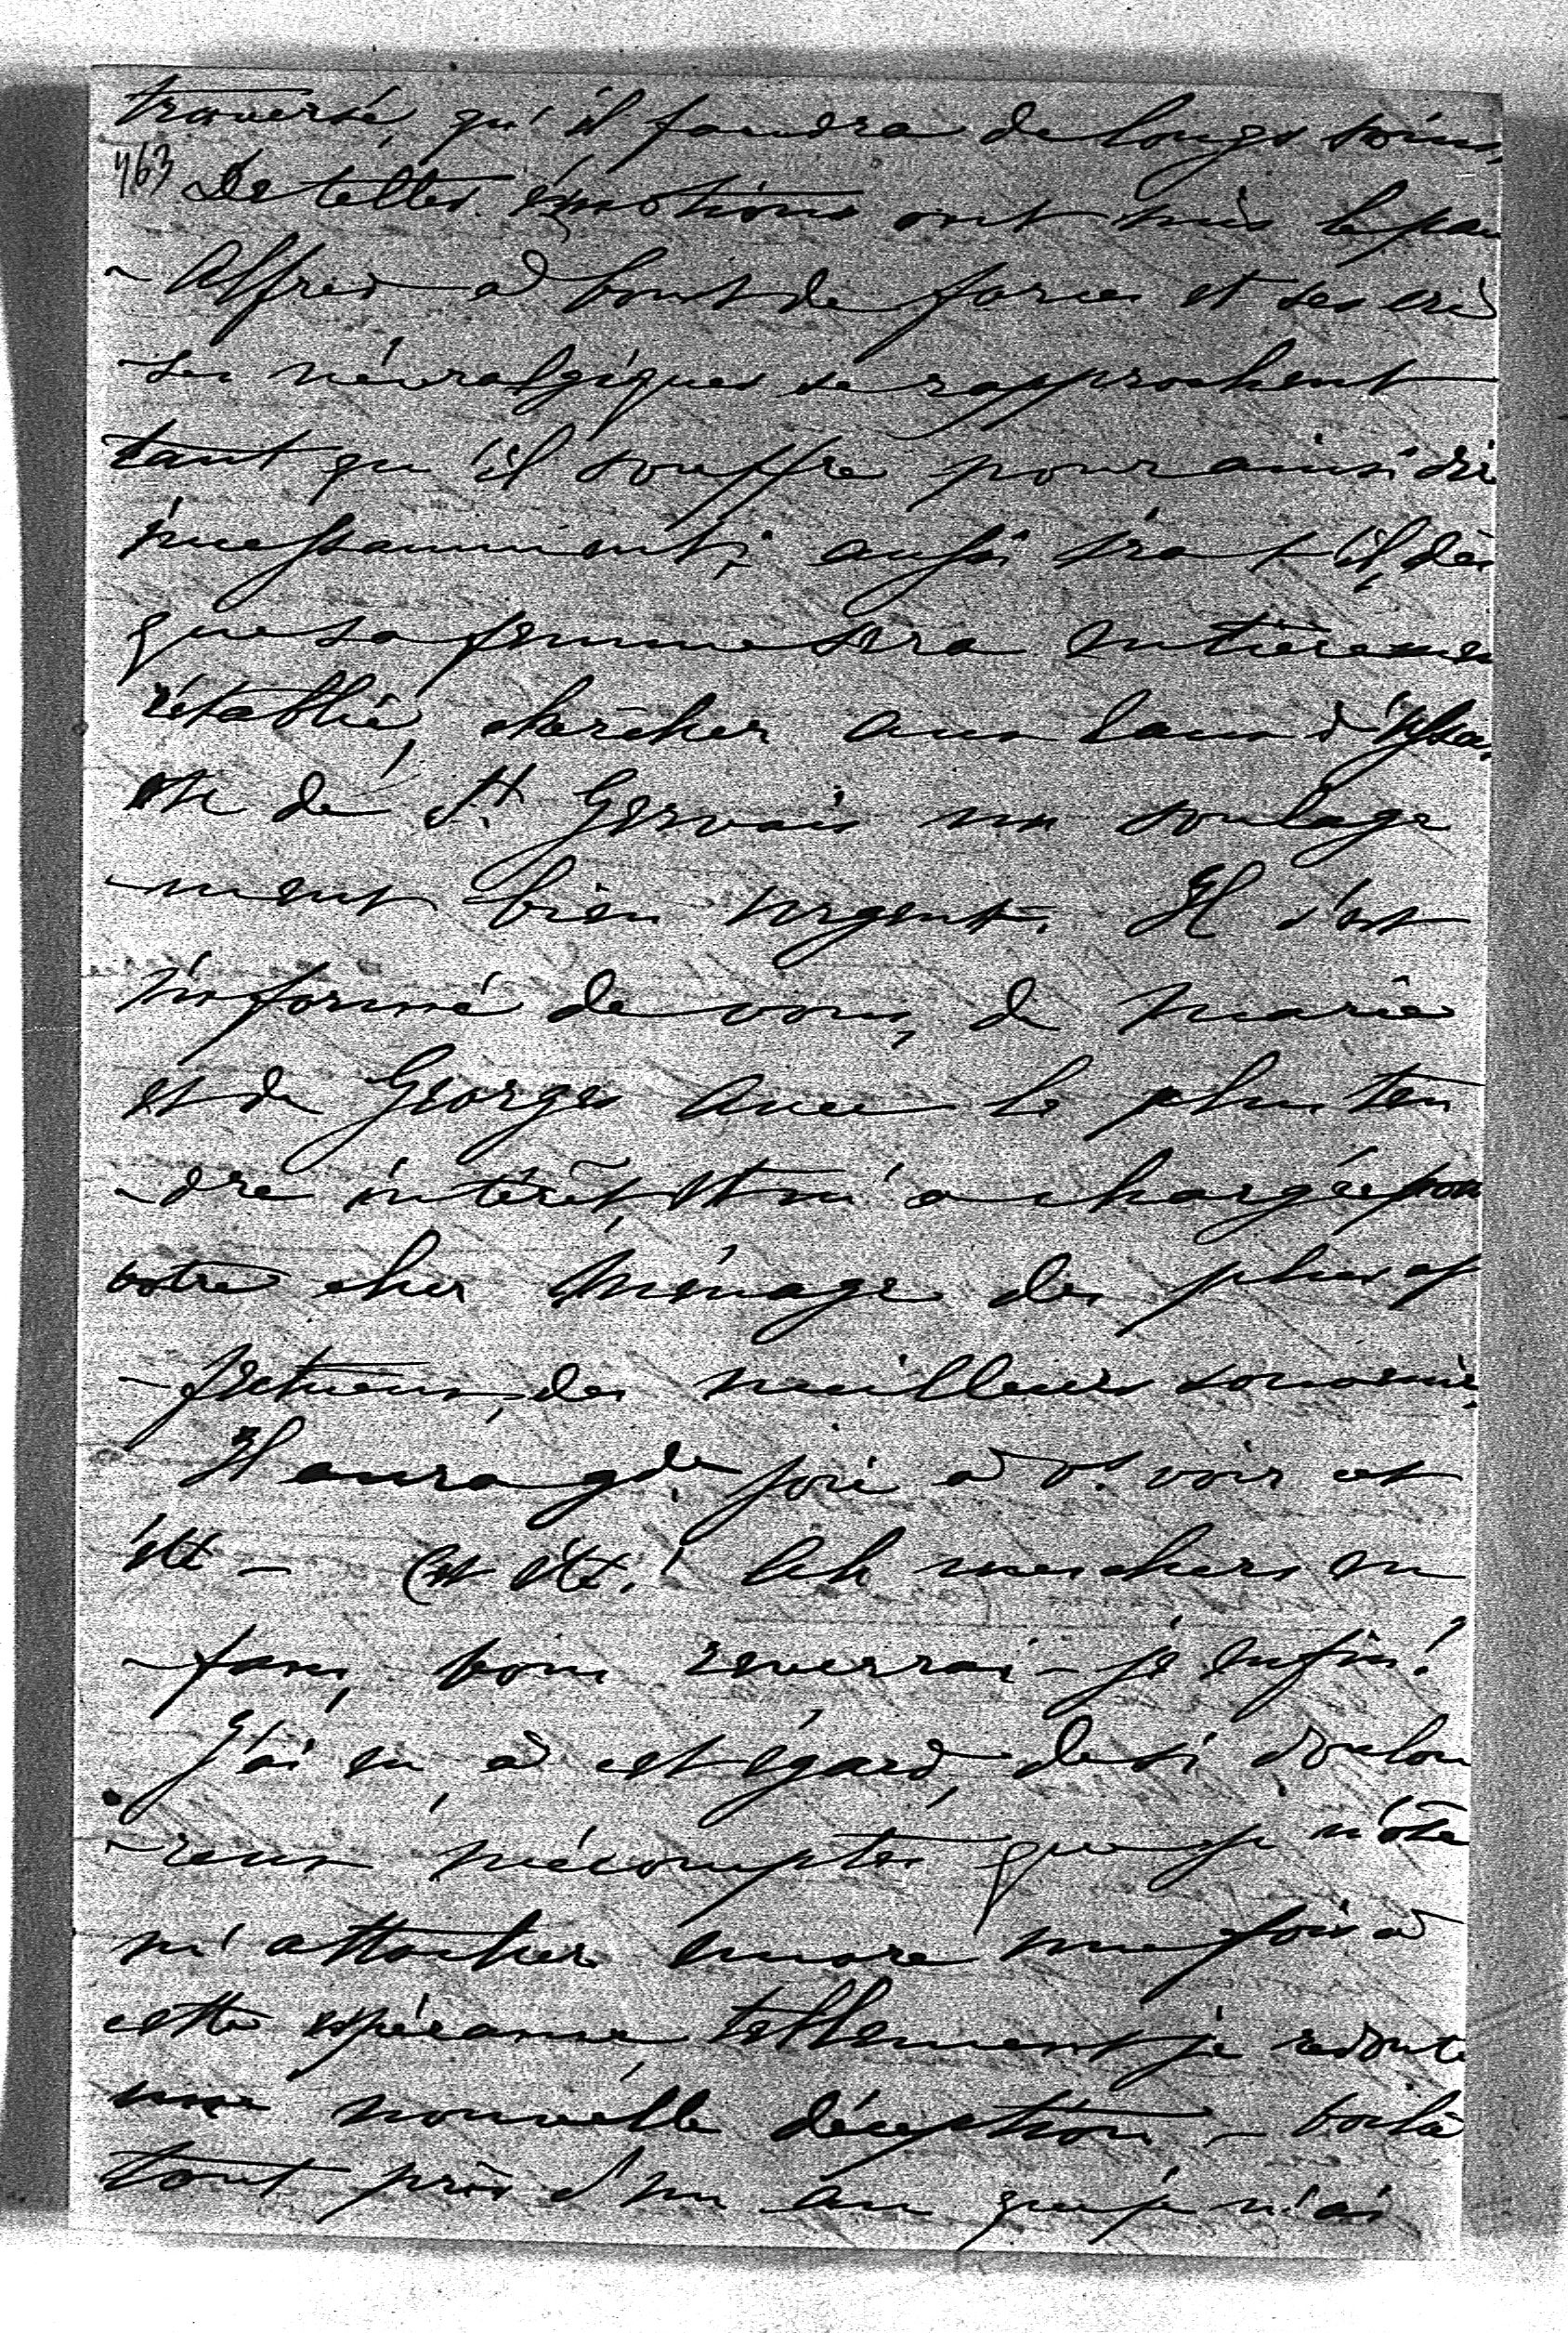 traversé, qu'il faudra de longs soins.
463 De telles émotions ont mis le pau
- Alfred à bout de forces et ses cri
- ses névralgiques se rapprochent
tant qu'il souffre pour ainsi dire
incessamment; aussi ira-t-il, dès
que sa femme sera entièremen
rétablie, chercher aux eaux d'
de St Gervais un soulage
- ment bien urgent. Il s'est
informé de vous, de Marie
et de Georges avec le plus ten
- dre intérêt, et m'a chargée pour
votre cher ménage des plus af
- fectueux, des meilleurs souvenirs.
Il aura gde joie à vs voir cet
été - Cet été! Ah mes chers en
- fans, vous reverrai-je enfin!
J'ai eu, à cet égard, de si doulou
- reux mécomptes que je n'ose
m'attacher encore une fois à
cette espérance tellement je redoute
une nouvelle déception - voilà
tout près d'un an que je n'ai